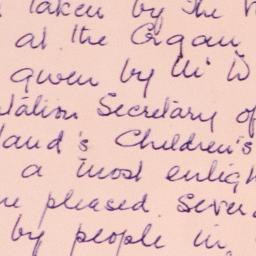 taken by the
at the Organ
given by Mr W
tation Secretary of
land's Children's
a most enligh
re pleased. Sever
by people in